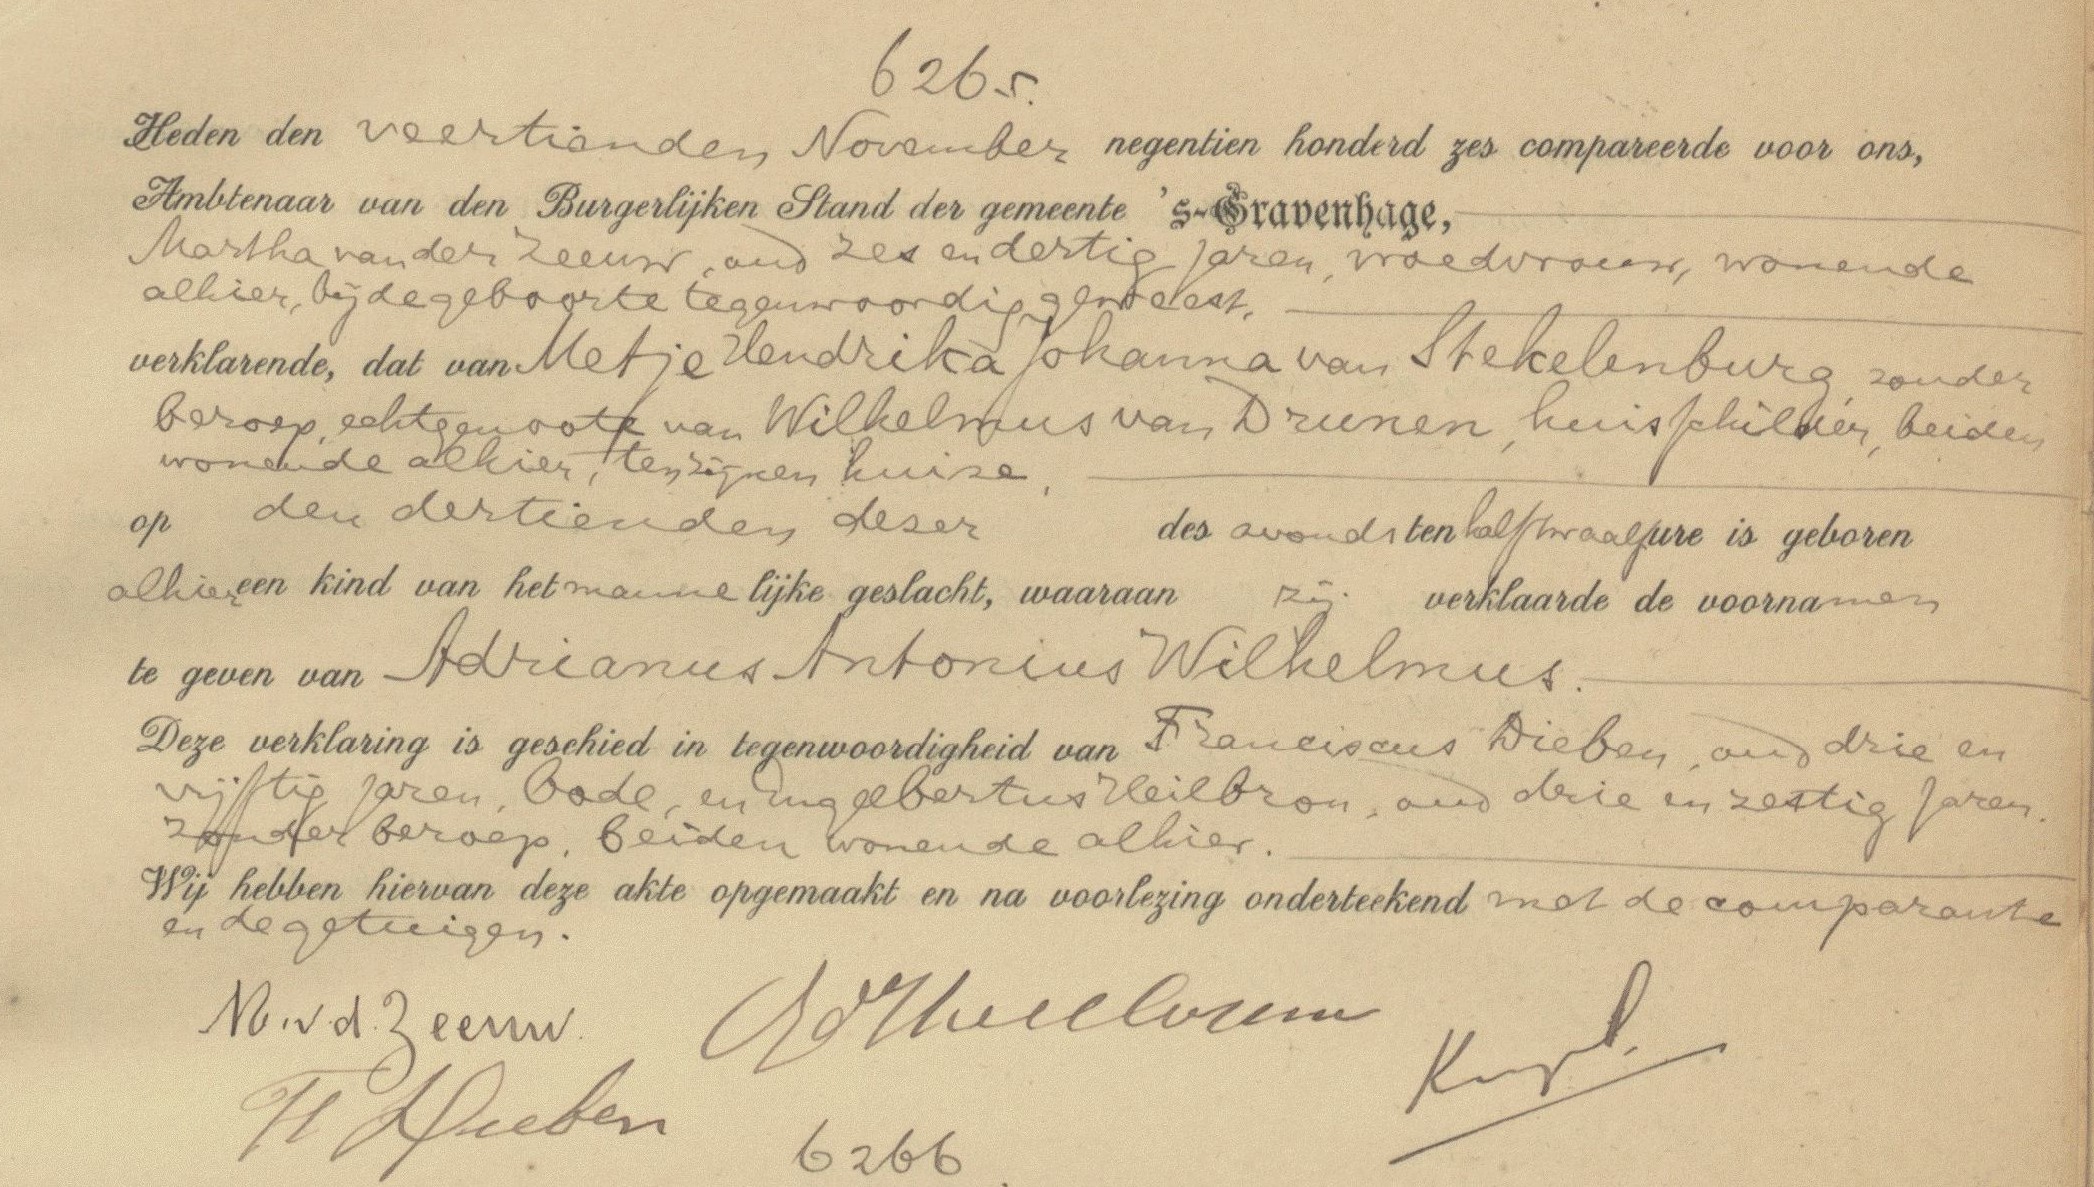 6265.
Heden den veertienden November negentien honderd zes compareerde voor ons,
Ambtenaar van den Burgerlijken Stand der gemeente 's-Gravenhage,
Martha van der Zeeuw, oud zes en dertig jaren, vroedvrouw, wonende
alhier, bij de geboorte tegenwoordig geweest,
verklarende, dat van Metje Hendrika Johanna van Stekelenburg, zonder
beroep, echtgenoote van Wilhelmus van Drunen, huisschilder, beiden
wonende alhier, ten zijnen huize,
op den dertienden dezer des avonds ten half twaalf ure is geboren
alhier een kind van het mannelijke geslacht, waaraan zij verklaarde de voornamen
te geven van Adrianus Antonius Wilhelmus.
Deze verklaring is geschied in tegenwoordigheid van Franciscus Dieben, oud drie en
vijftig jaren, bode, en Engelbertus Heilbron, oud drie en zestig jaren.
zonder beroep, beiden wonende alhier.
Wij hebben hiervan deze akte opgemaakt en na voorlezing onderteekend met de comparante
en de getuigen.
M. v. d. Zeeuw.
F Dieben
6266